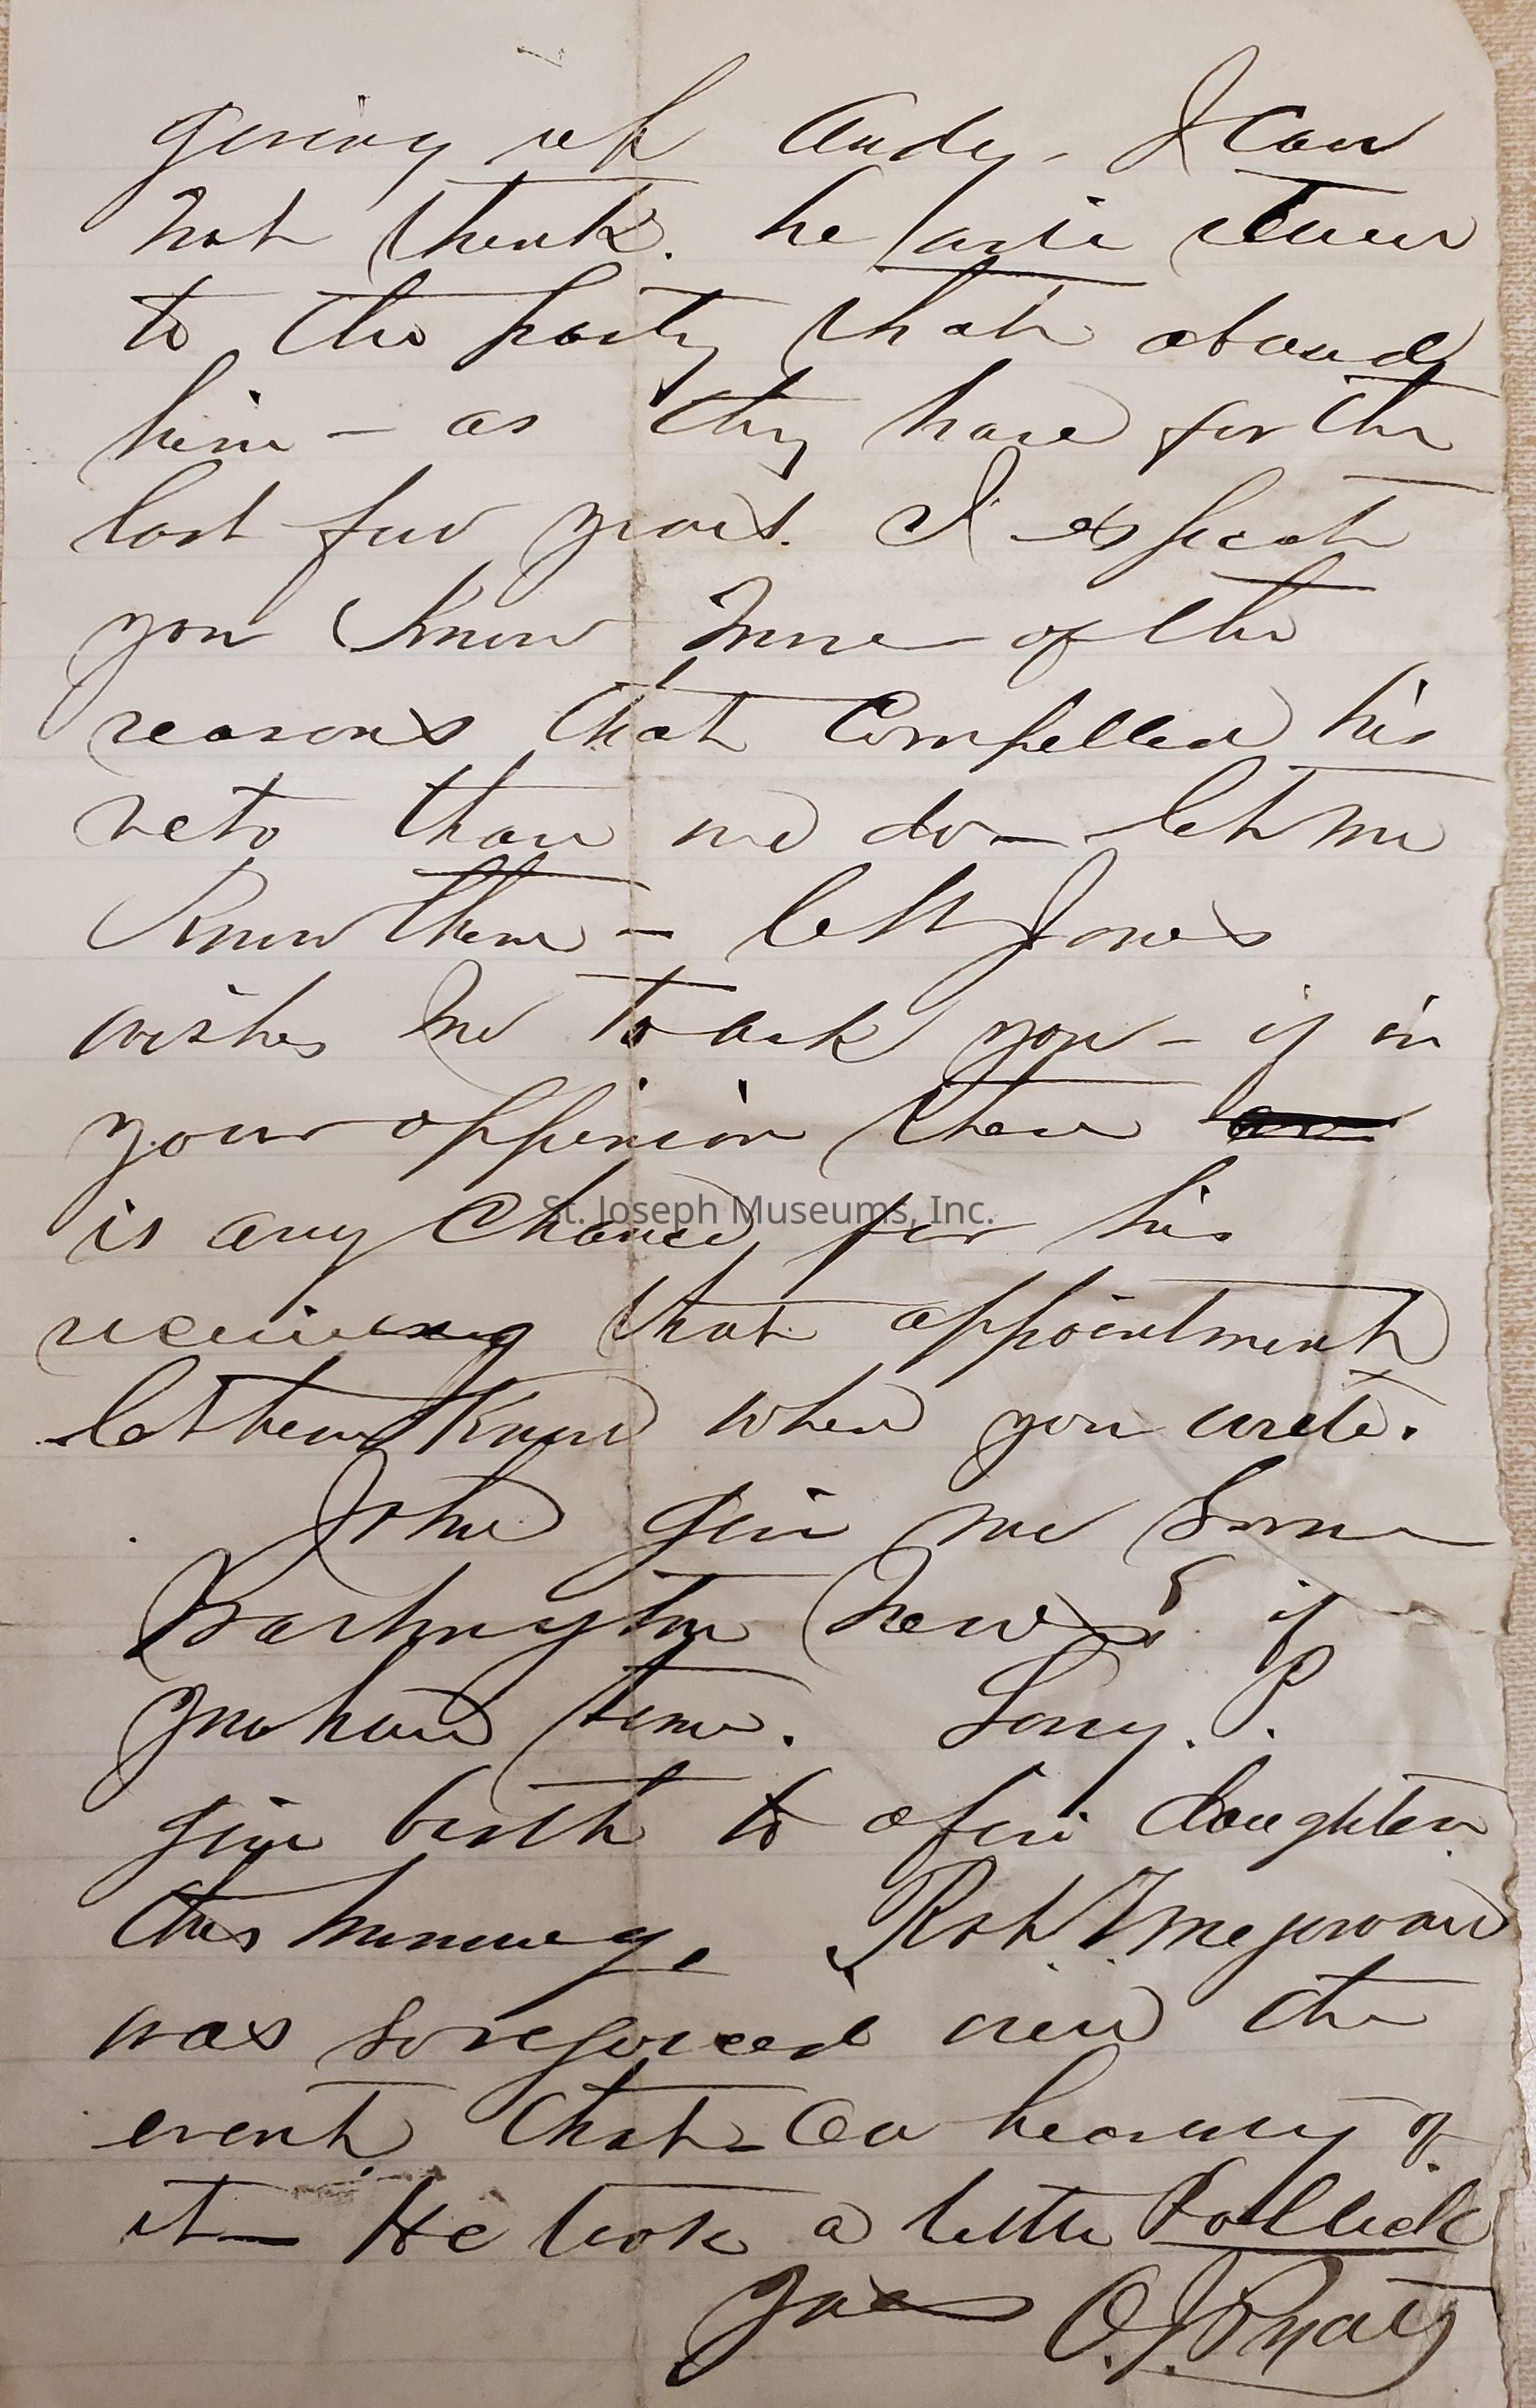 giving up Andy. I Can
not think. he is
to the party that stand
him – as they have for the
last few years. I expect
you Know more of the
reasons that Compelled his
veto than we do – let me
Know them – Jones
wishes me to ask you – if in
your oppinion there are
is any Chance for his
St. Joseph Museums, Inc.
receiving that appointment
let him Know when you write.
John give me Some
Washington News if
you have time. P.
give birth to a fine daughter
this morning. Robt. T.
was so rejoiced over the
event that – On hearing of
it – He took a little
Yrs O. J.